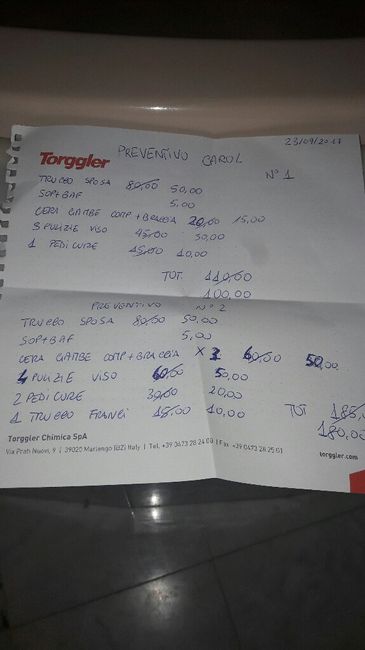 23/09/2017
Torggler PREVENTIVO CAROL N° 1
TRUCCO SPOSA 80,00 50,00
SOP+BAF 5,00
CERA GAMBE COMP+BRACCIA 20,00 15,00
3 PULIZIE VISO 45,00 30,00
1 PEDICURE 15,00 10,00
TOT. 110,00
100,00
PREVENTIVO N° 2
TRUCCO SPOSA 80,00 50,00
SOP+BAF 5,00
CERA GAMBE COMP+BRACCIA X 60,00 50,00
4 PULIZIE VISO 60,00 50,00
2 PEDICURE 30,00 20,00
1 TRUCCO 15,00 10,00 TOT 185,00
180,00
Torggler Chimica SpA
Via Prati Nuovi, 9 | 39020 Marlengo (BZ) Italy | Tel. +39 0473 28 24 00 | Fax +39 0473 28 25 01
torggler.com